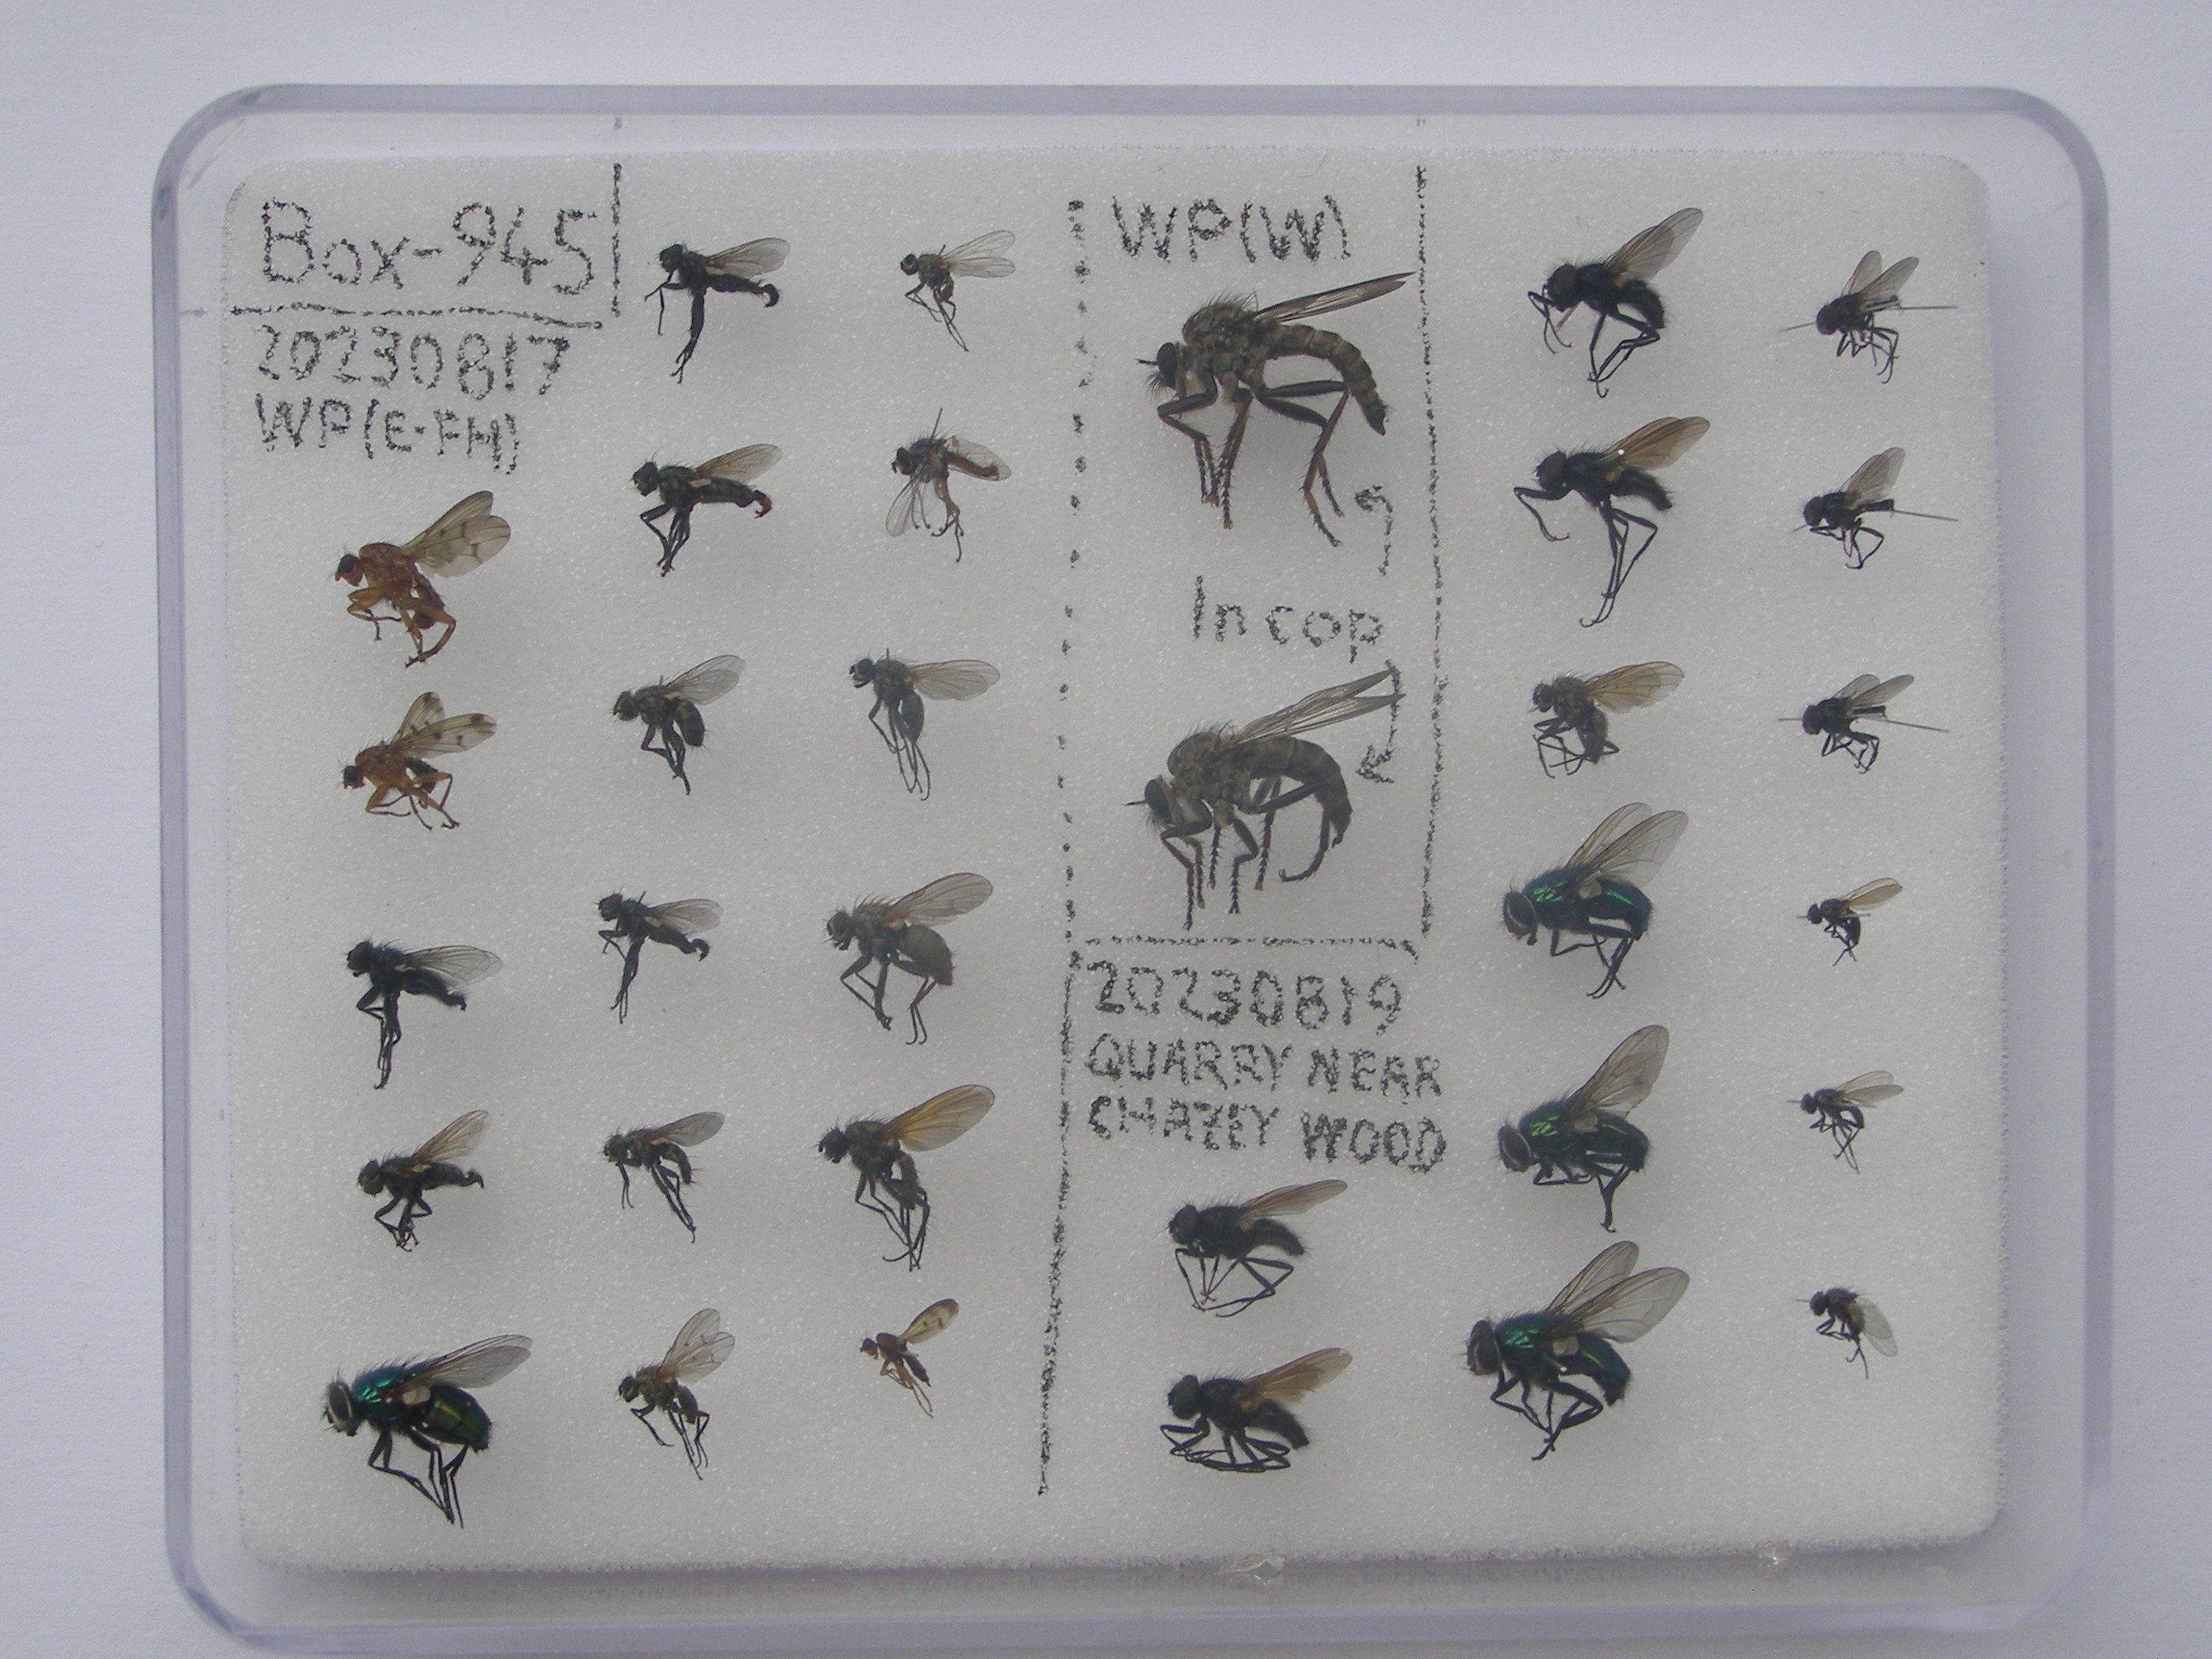 Box-945
20230817
WP(E-FH)
WP(W)
In cop
20230819
QUARRY NEAR
CHAZEY WOOD